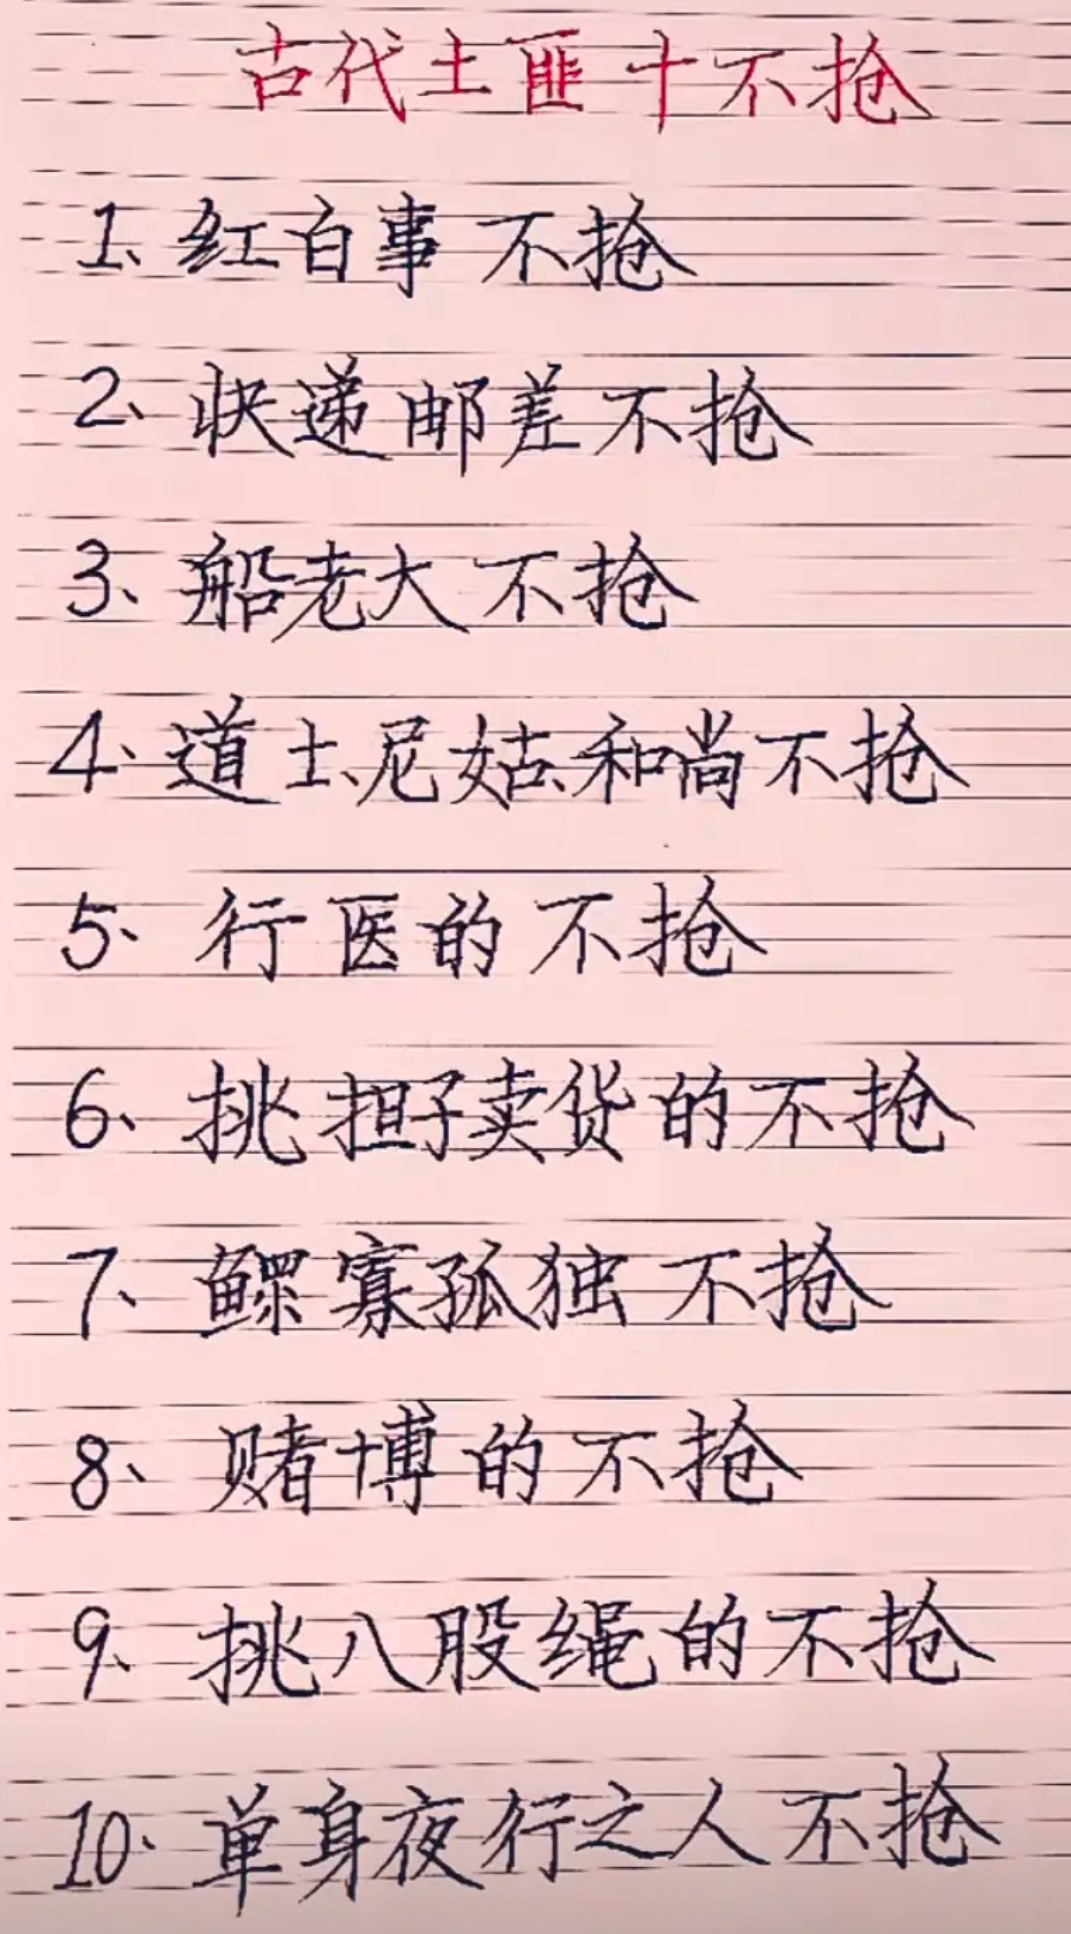 古代土匪十不抢
1、红白事不抢
2、快递邮差不抢
3、船老大不抢
4、道士、尼姑、和尚不抢
5、行医的不抢
6、挑担子卖货的不抢
7、鳏寡孤独不抢
8、赌博的不抢
9、挑八股绳的不抢
10、单身夜行之人不抢